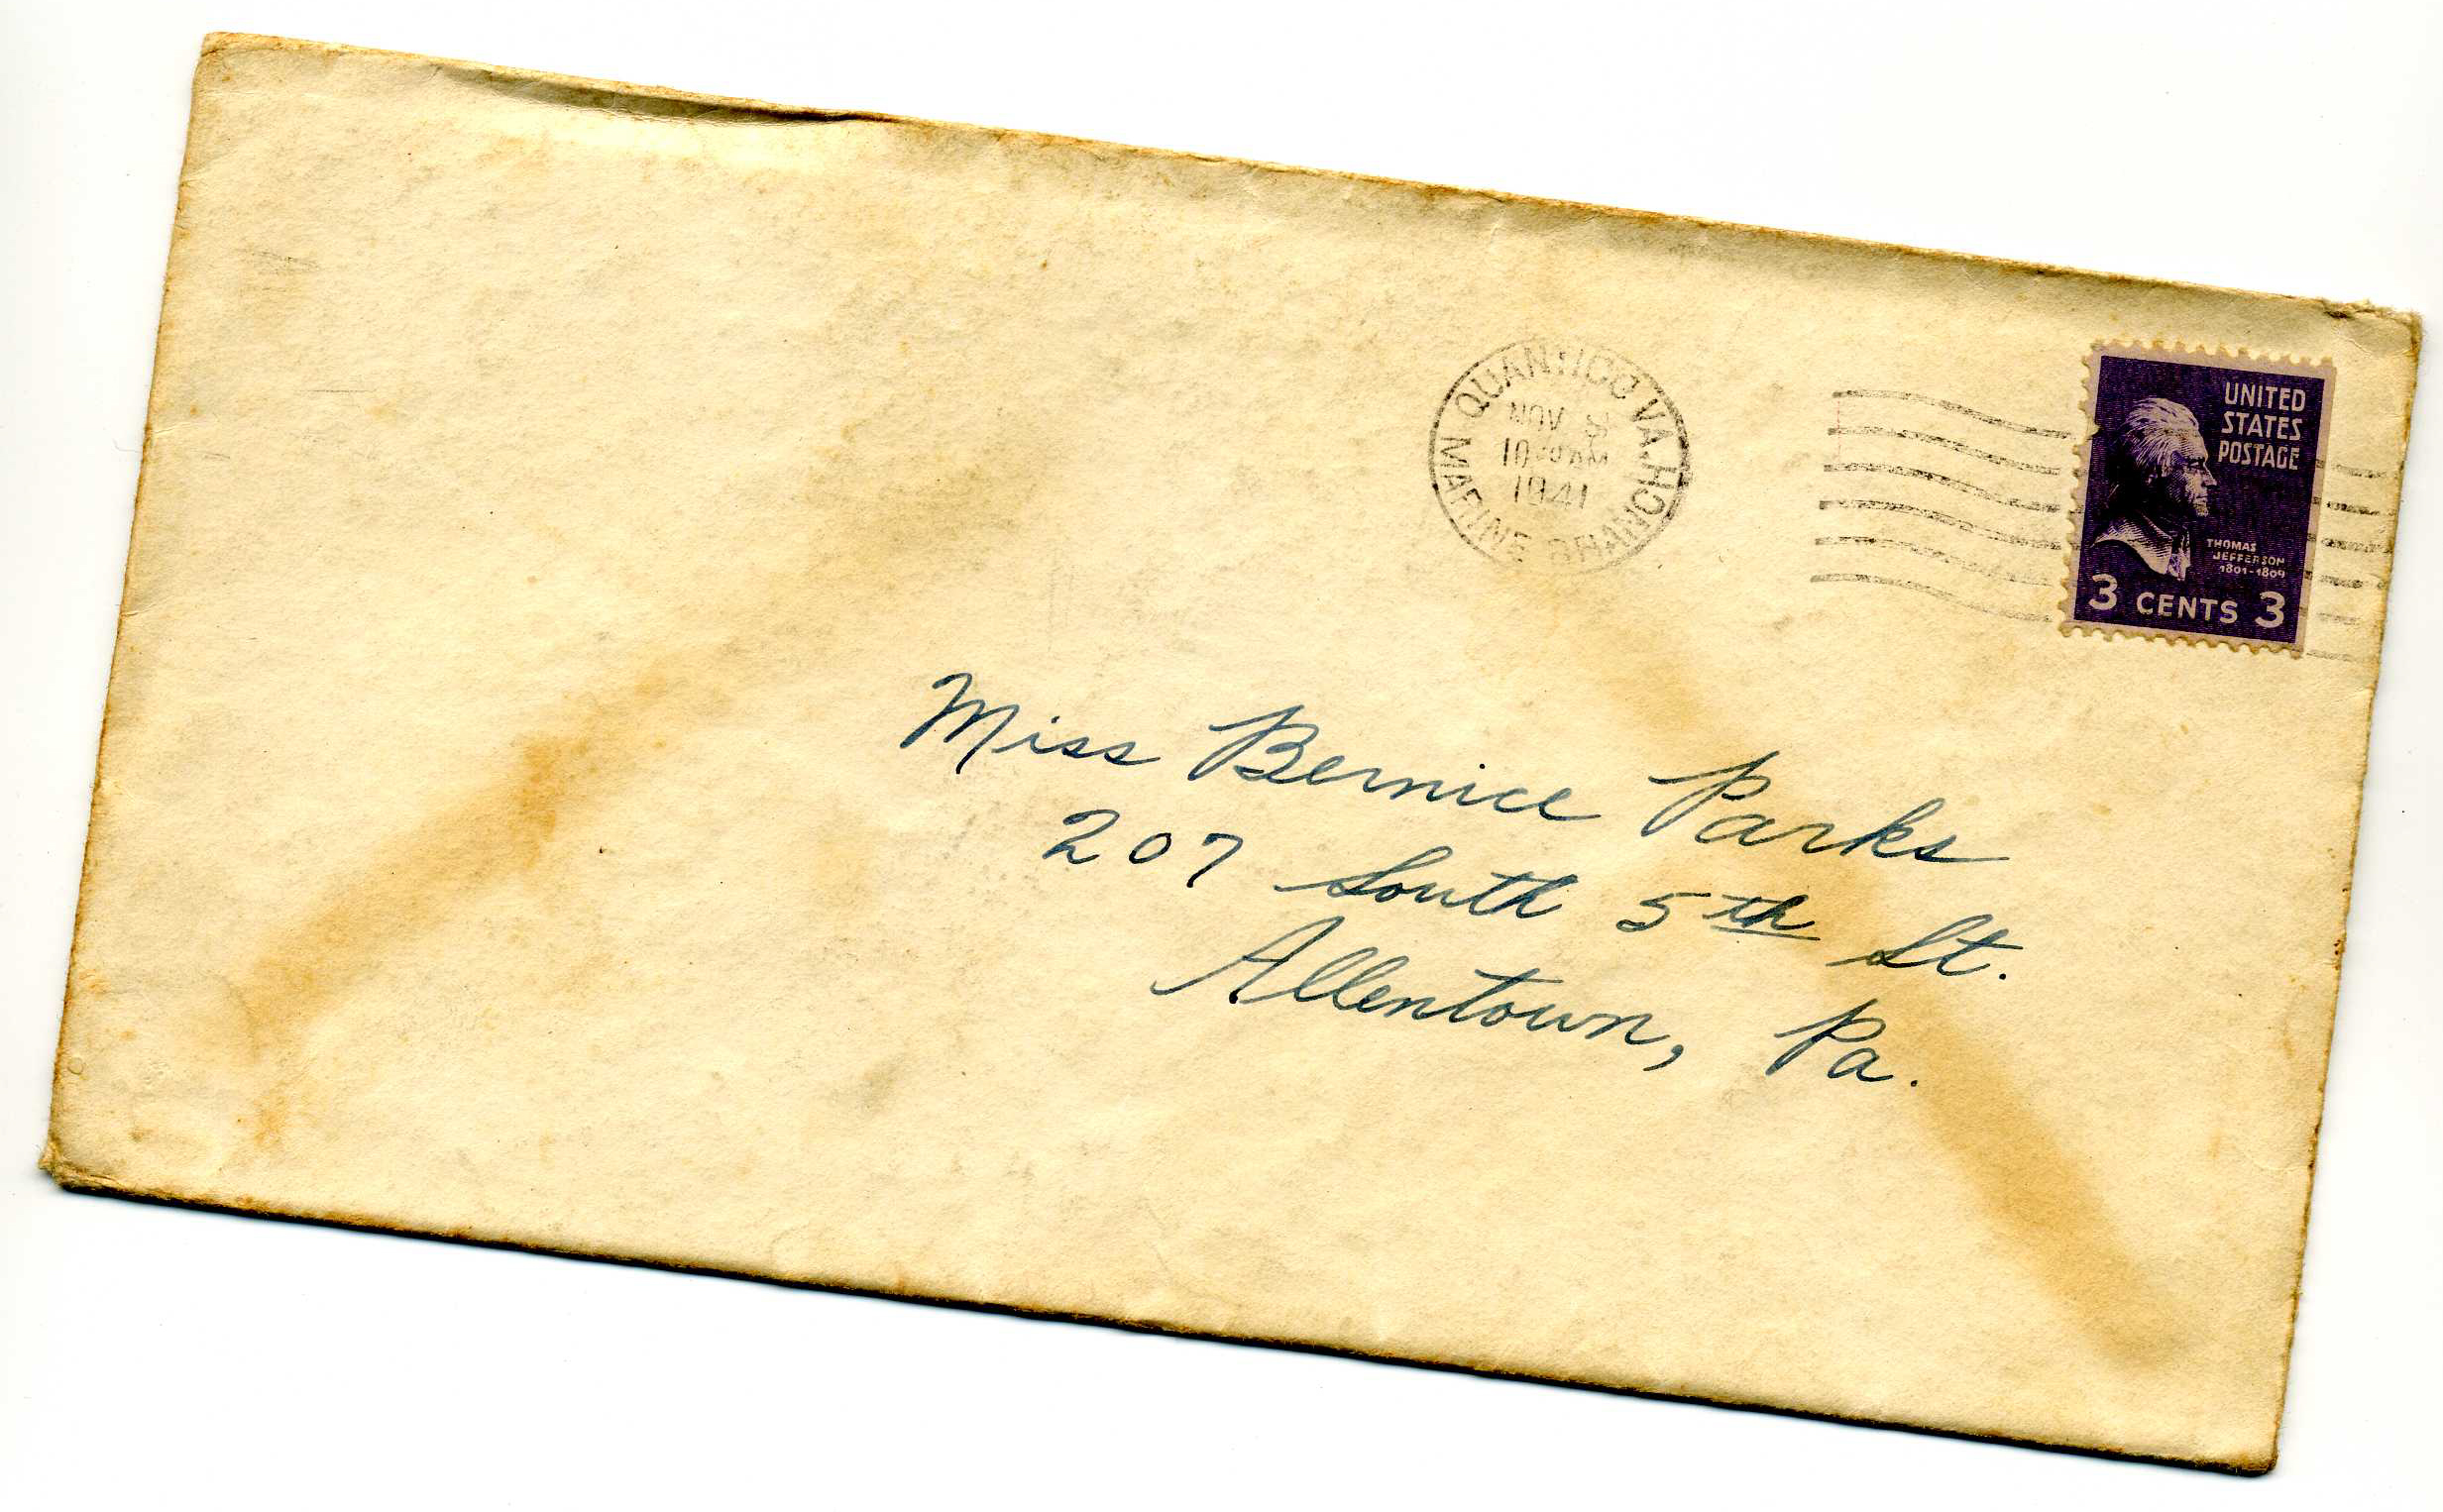 QUANTICO VA.
NOV
10 AM
1941
MARINE BRANCH
UNITED
STATES
POSTAGE
THOMAS
JEFFERSON
1801-1809
3 CENTS 3
Miss Bernice Parks
207 South 5th St.
Allentown, Pa.